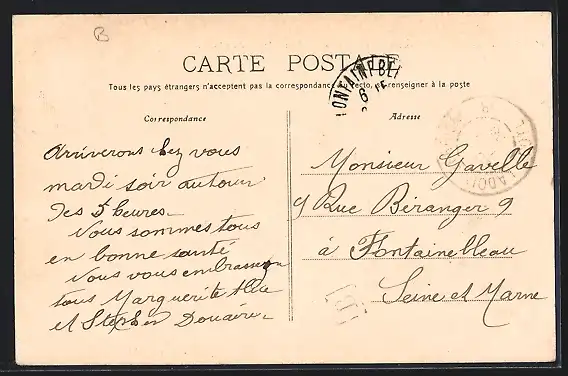 B
CARTE POSTALE
Tous les pays étrangers n'acceptent pas la correspondance au recto, se renseigner à la poste
Correspondance
Adresse
FONTAINEBLE
6
Arriverons chez vous
mardi soir autour
des 5 heures.
Nous sommes tous
en bonne santé
Nous vous embrassons
tous Marguerite
et Stephen Douaire
Monsieur Gavelle
9 Rue Béranger 9
à Fontainebleau
Seine et Marne